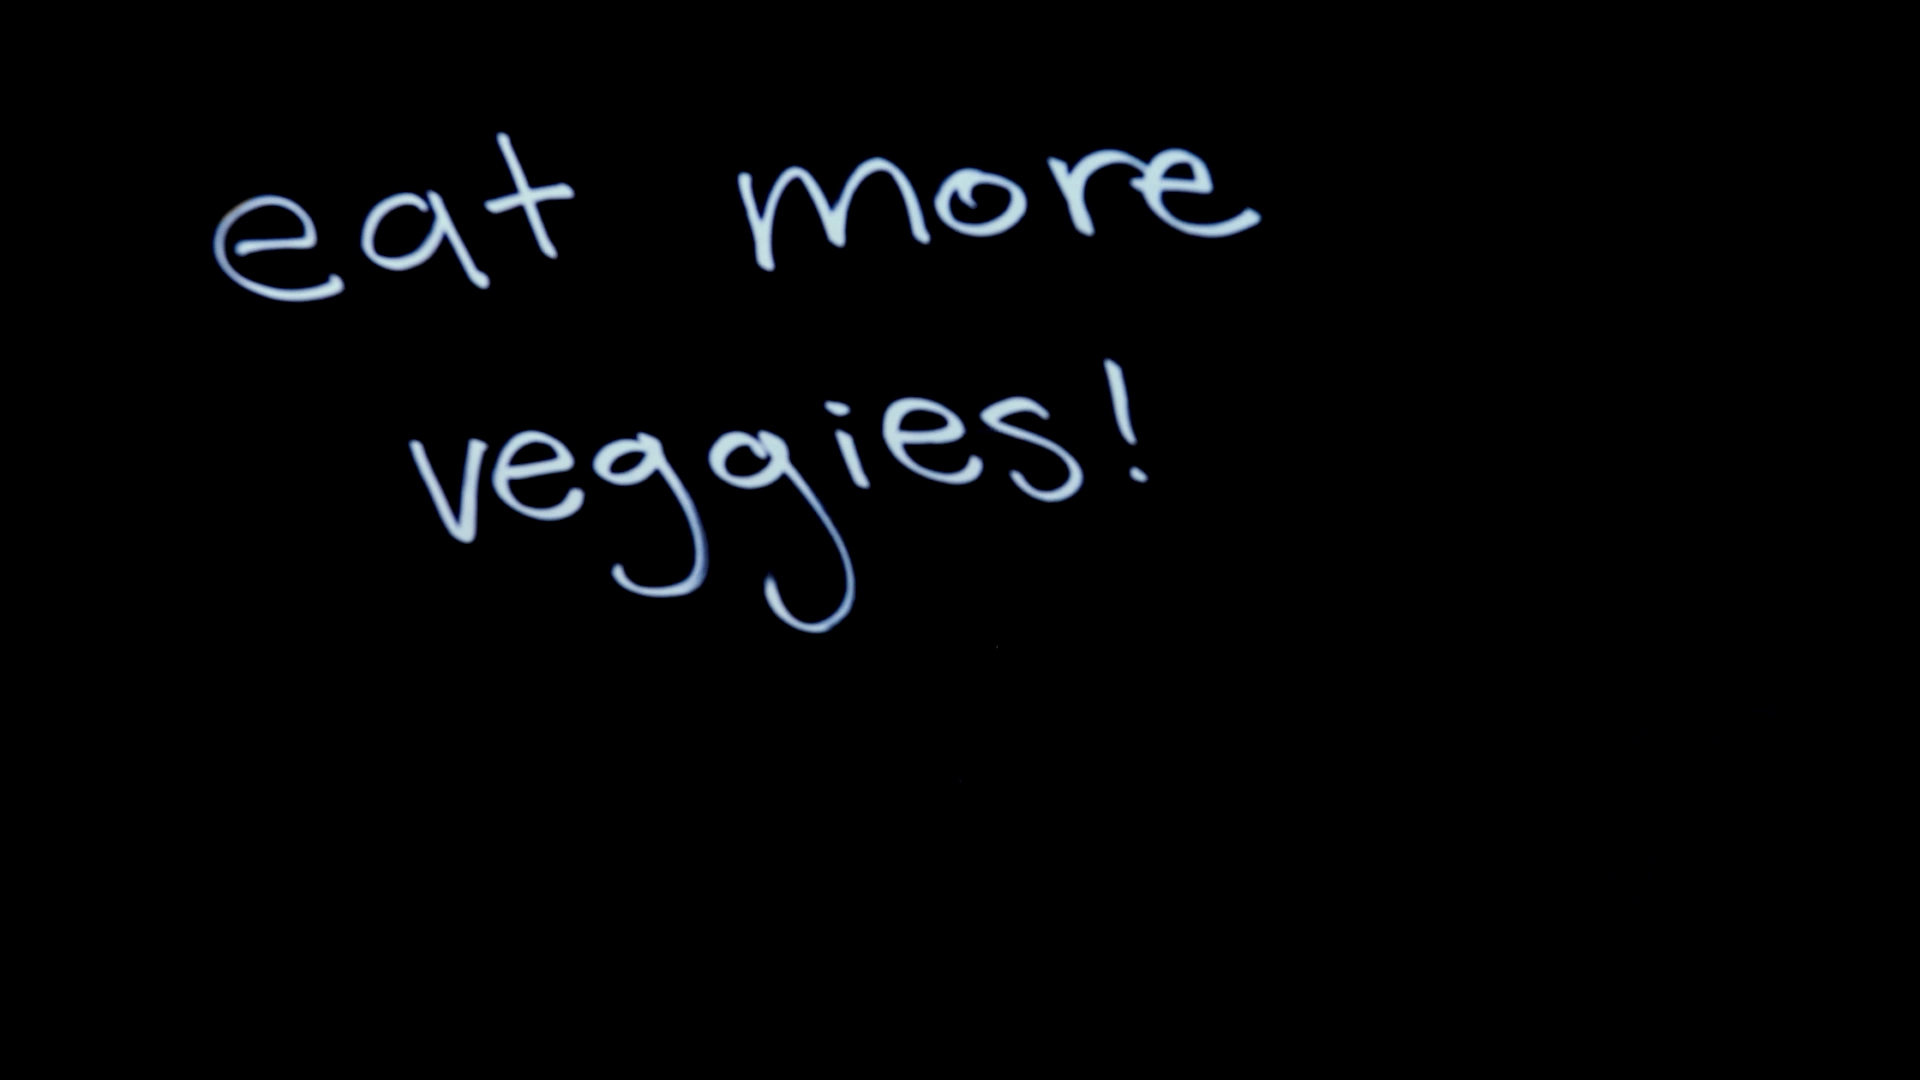 eat more
veggies!